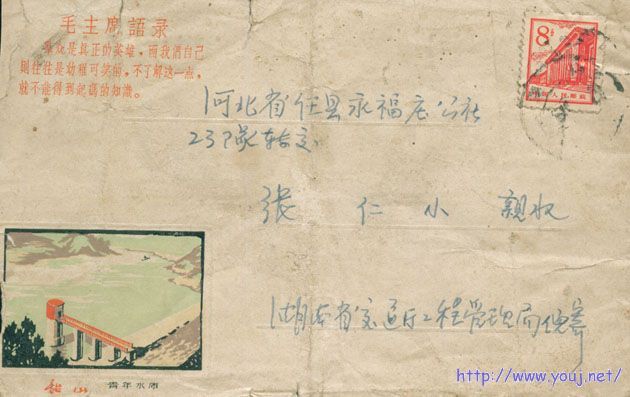 毛主席語录
群众是真正的英雄，而我們自己
則往往是幼稚可笑的，不了解这一点，
就不能得到起碼的知識。
8分
中国人民邮政
河北省任县永福庄公社
23队转交
张仁小 親收
湖南省交通厅工程管理局
韶山 青年水闸
http://www.youj.net/